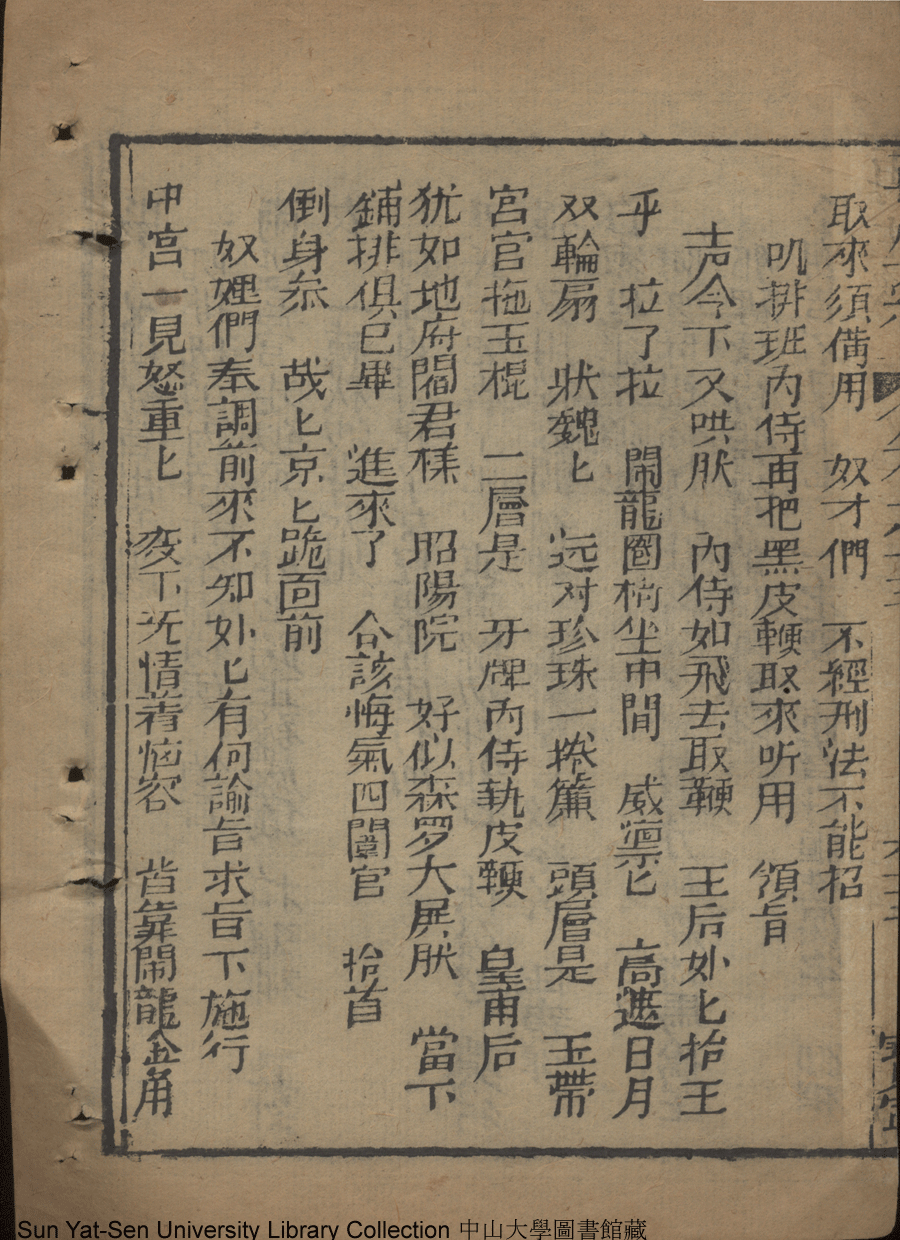 取來須備用　奴才們　不經刑法不能招
叽排班內侍再把黑皮鞭取來听用　領旨
一声令下又哄肰　內侍如飛去取鞭　王后妣匕抬王
乎　拉了拉　閙龍圈椅坐中間　威凛匕　高遮日月
双輪扇　狀魏匕　远对珍珠一捲簾　頭層是　玉帶
宮官拖玉棍　二層是　牙牌內侍執皮鞭　皇甫后
犹如地府閻君樣　昭陽院　好似森罗大展肰　當下
鋪排俱已畢　進來了　合該悔氣四闍官　抬首
倒身叅　战匕京匕跪面前
奴娌們奉調前來不知妣匕有何諭旨求旨下施行
中宮一見怒重匕　变下旡情着恼容　背靠閙龍金角
Sun Yat-Sen University Library Collection 中山大學圖書館藏